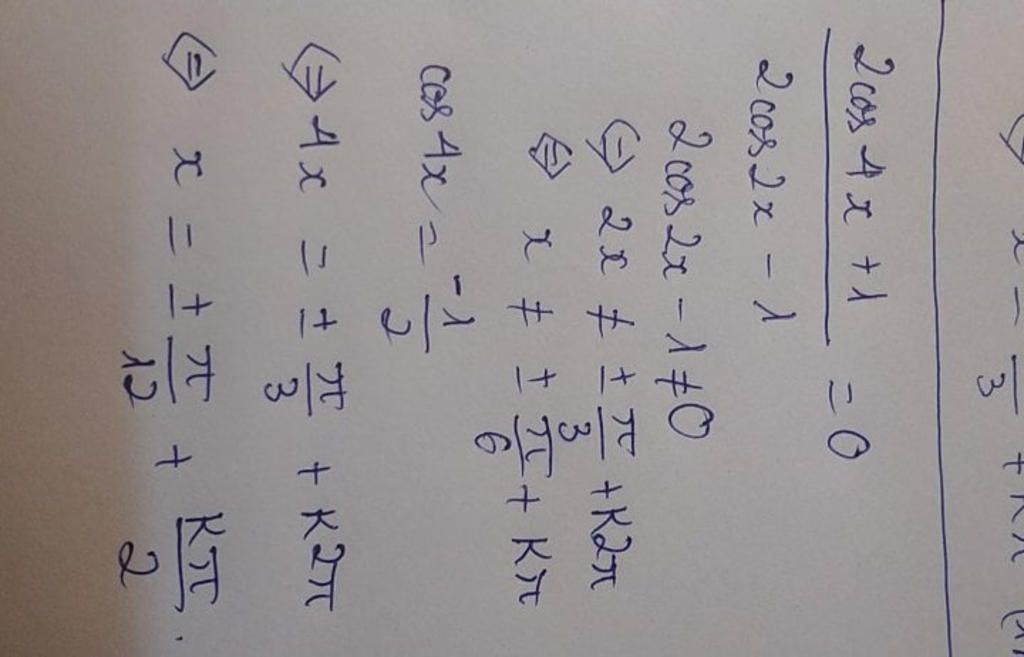 x = π/3 + kπ
(2cos 4x + 1)/(2cos 2x - 1) = 0
2cos 2x - 1 ≠ 0
⇔ 2x ≠ ± π/3 + k2π
⇔ x ≠ ± π/6 + kπ
cos 4x = -1/2
⇔ 4x = ± π/3 + k2π
⇔ x = ± π/12 + kπ/2.